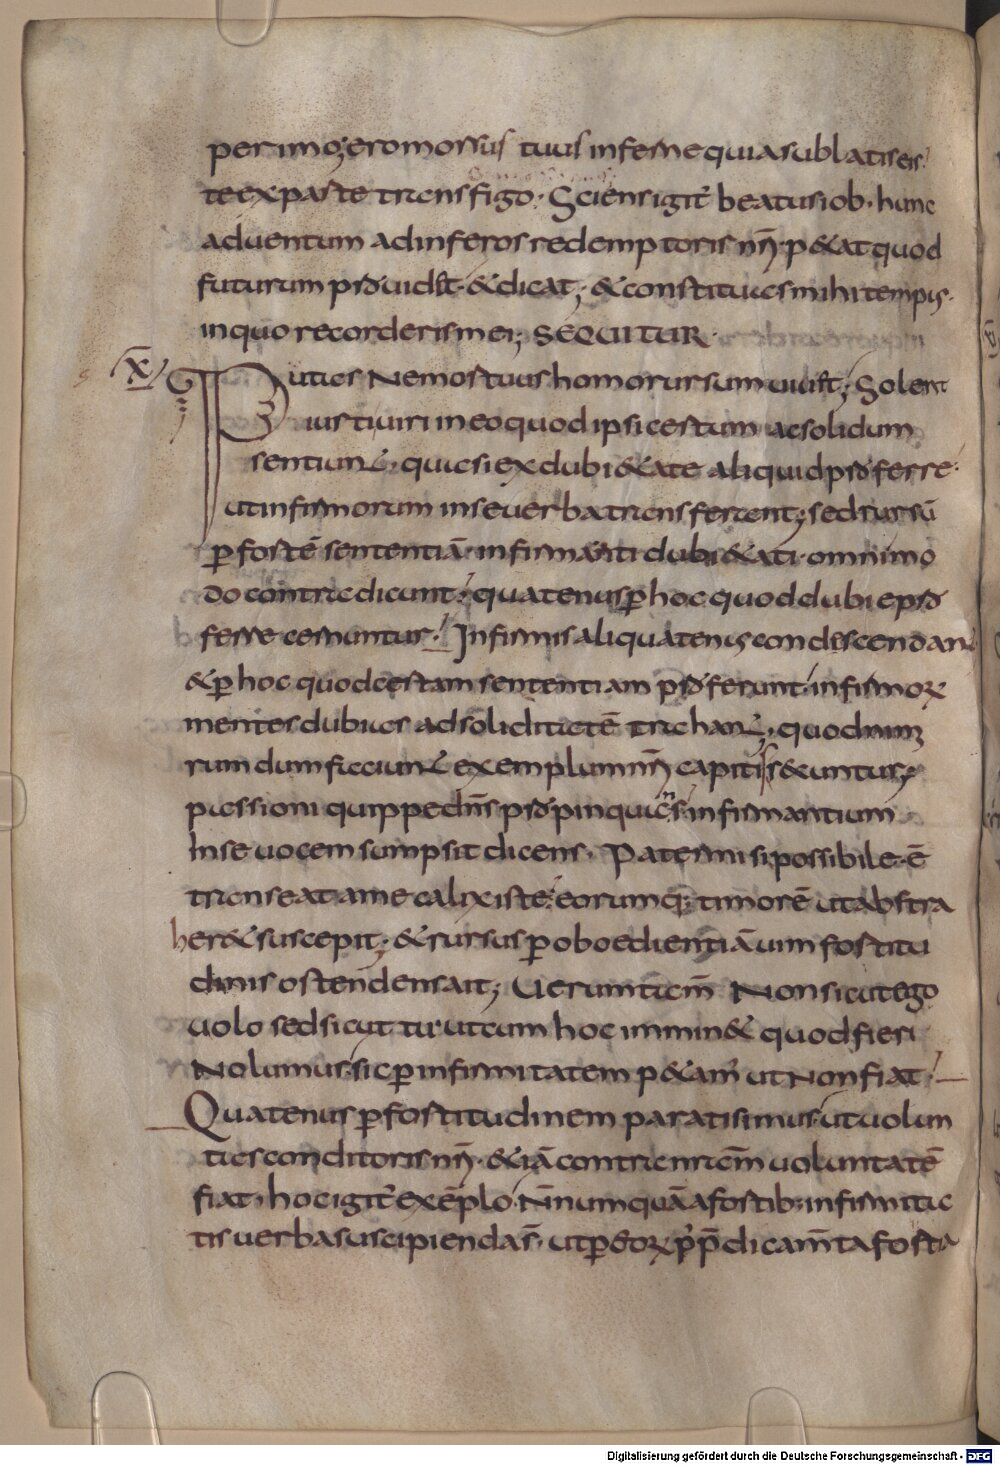 perimo; ero morsus tuus inferne quia sublatis eis
te ex parte transfigo. Sciens igit beatus iob. hunc
aduentum ad inferos redemptoris nri p&at quod
futurum pręuid&. & dicat; & constituas mihi tempus.
in quo recorderis mei; SEQUITUR.
X PUtas Nemortuus homo rursum uiuat; Solent
iusti uiri in eo quod ipsi certum ac solidum
sentiunt. quasi ex dubi&ate aliquid pręferre.
ut infirmorum in se uerba transferant; sed rursū
p fortē sententiā infirmanti dubi&ati. omnimo
do contradicunt. quatenus p hoc quod dubie prę
ferre cernuntur. Infirmis aliquatenus condescendant
& p hoc quod certam sententiam pręferunt. infirmorum
mentes dubias ad soliditatē trahant; quod nimi
rum dum faciunt exemplum nri capitis secuntur;
passioni quippe dns propinquans. infirmantium
In se uocem sumpsit dicens. Pater mi si possibile. ē
transeat a me calix iste. eorumq; timorē ut abstra
her& suscepit; & rursus p oboedientiā uim fortitu
dinis ostendens ait; Uerumtam Non sicut ego
uolo sed sicut tu. ut cum hoc immin& quod fieri
Nolumus. sic p infirmitatem p&am ut Non fiat.
Quatenus p fortitudinem parati simus. ut uolun
tas conditoris nri. & iā contra nram uoluntatē
fiat. hoc igit exēplo. Nnumquā a fortib; infirmita
tis uerba suscipienda s. ut p eorum p p dicam ta forta
Digitalisierung gefördert durch die Deutsche Forschungsgemeinschaft - DFG